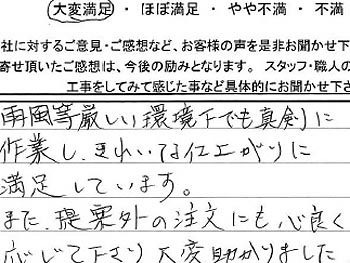 大変満足・ほぼ満足・やや不満・不満
社に対するご意見・ご感想など、お客様の声を是非お聞かせ下
寄せ頂いたご感想は、今後の励みとなります。スタッフ・職人の
工事をしてみて感じた事など具体的にお聞かせ下さ
雨風等厳しい環境下でも真剣に
作業し、きれいな仕上がりに
満足しています。
また、提案外の注文にも心良く
応じて下さり大変助かりました